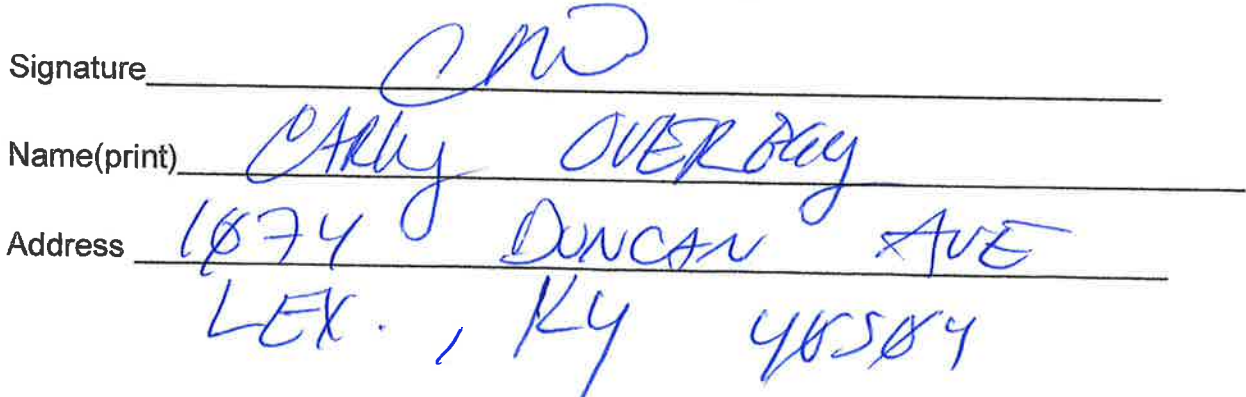 Signature
Name(print) CARly OVERBAy
Address 1074 DUNCAN AVE
LEX., KY 40504